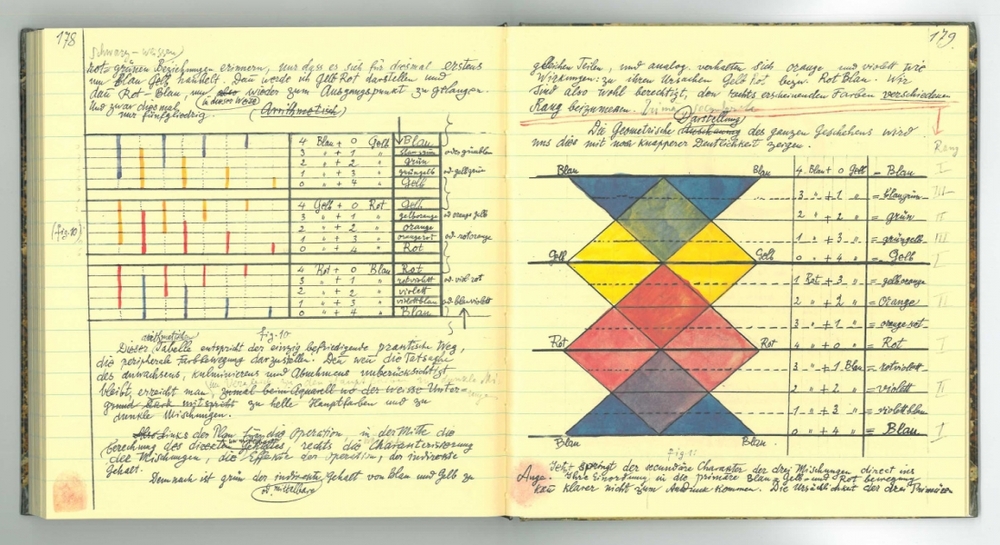 178
schwarz-weissen
rot-grünen Beziehungen erinnern, nur dass es sich für diesmal erstens
um Blau Gelb handelt. Dann werde ich Gelb Rot darstellen und
dann Rot-Blau, um aber wieder zum Ausgangspunkt zu gelangen.
in dieser Weise
Und zwar diesmal (Arithmetisch)
nur fünfgliedrig.
4 Blau + 0 Gelb Blau
3 " + 1 " blaugrün od. grünblau
2 " + 2 " grün
1 " + 3 " grüngelb od. gelbgrün
0 " + 4 " Gelb
4 Gelb + 0 Rot Gelb
3 " + 1 " gelborange od. orangegelb
2 " + 2 " orange
(fig. 10) 1 " + 3 " orangerot od. rotorange
0 " + 4 " Rot
4 Rot + 0 Blau Rot
3 " + 1 " rotviolett od. viol. rot
2 " + 2 " violett
1 " + 3 " violettblau od. blauviolett
0 " + 4 " Blau
arithmetische fig. 10
Dieser Tabelle entspricht der einzig befriedigende praktische Weg,
die peripherale Farbbewegung darzustellen. Denn wenn die Tatsache
des Anwachsens, Kulminierens und Abnehmens unberücksichtigt
bleibt, erreicht man, zumal beim Aquarell wo der weisse Unter-
grund mitspricht zu helle Hauptfarben und zu
dunkle Mischungen.
Links der Plan für die Operation, in der Mitte die
Berechnung des directen Gehaltes, rechts die Charakterisierung
der Mischungen, die Effekte der Operation, der indirecte
Gehalt.
Demnach ist grün der indirecte Gehalt von Blau und Gelb zu
od. mittelbare
179
gleichen Teilen, und analog verhalten sich orange und violett wie
Wirkungen: zu ihren Ursachen Gelb Rot bezw. Rot Blau. Wir
sind also wohl berechtigt, den rechts erscheinenden Farben verschiedenen
Rang beizumessen.
Darstellung
Die Geometrische des ganzen Geschehens wird
uns dies mit noch knapperer Deutlichkeit zeigen.
Rang
Blau Blau 4 Blau + 0 Gelb = Blau I
3 " + 1 " = blaugrün III
2 " + 2 " = grün II
1 " + 3 " = grüngelb III
Gelb Gelb 0 " + 4 " = Gelb I
1 Rot + 3 " = gelborange
2 " + 2 " = Orange II
3 " + 1 " = orangerot
Rot Rot 4 " + 0 " = Rot I
3 " + 1 Blau = rotviolett
2 " + 2 " = violett II
1 " + 3 " = violettblau
Blau Blau 0 " + 4 " = Blau I
fig. 11
Jetzt springt der secundäre Charakter der drei Mischungen direct ins
Auge. Ihre Einordnung in die primäre Blau-Gelb- und Rot bewegung
kann klarer nicht zum Ausdruck kommen. Die Ursächlichkeit der drei Primären